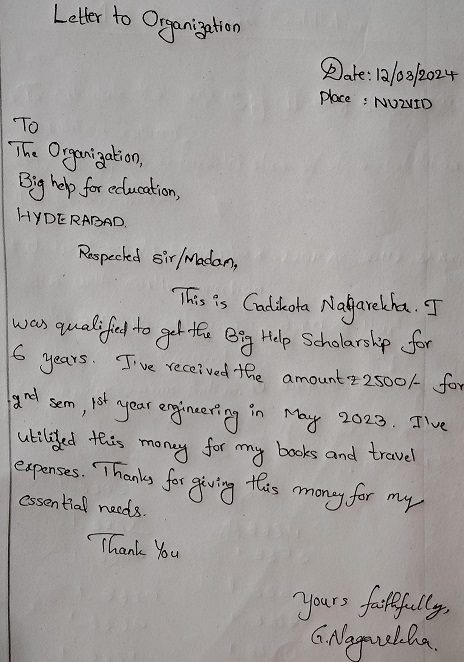 Letter to Organization
Date: 12/03/2024
Place : NUZVID
To
The Organization,
Big help for education,
HYDERABAD.
Respected sir/Madam,
This is Gadikota Nagarekha. I
was qualified to get the Big Help Scholarship for
6 years. I've received the amount ₹2500/- for
2nd sem, 1st year engineering in May 2023. I've
utilized this money for my books and travel
expenses. Thanks for giving this money for my
essential needs.
Thank You
Yours faithfully,
G.Nagarekha.